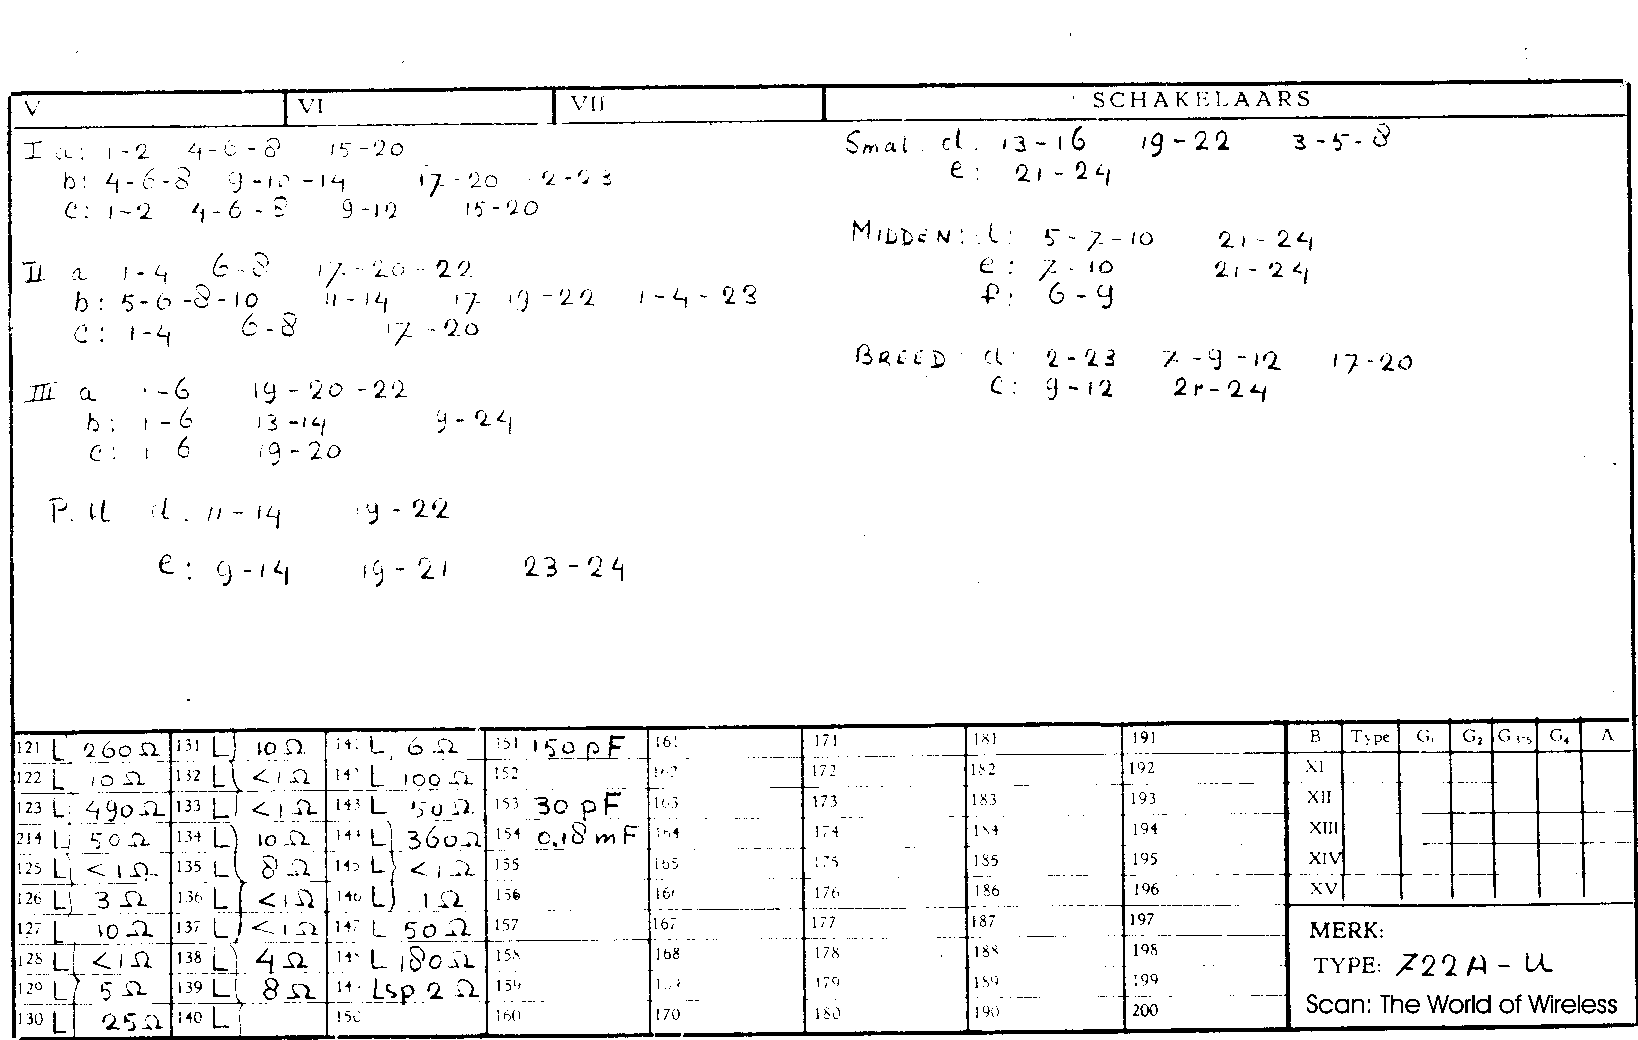 V VI VII SCHAKELAARS
I a: 1-2 4-6-8 15-20
b: 4-6-8 9-10-14 17-20 2-23
c: 1-2 4-6-8 9-12 15-20
II a 1-4 6-8 17-20-22
b: 5-6-8-10 11-14 17 19-22 1-4-23
c: 1-4 6-8 17-20
III a -6 19-20-22
b: 1-6 13-14 9-24
c: 1 6 19-20
P.U d. 11-14 19-22
e: 9-14 19-21 23-24
Smal. d. 13-16 19-22 3-5-8
e: 21-24
MIDDEN: d: 5-7-10 21-24
e: 7-10 21-24
f: 6-9
BREED d: 2-23 7-9-12 17-20
C: 9-12 21-24
121 L 260Ω 131 L 10Ω 141 L 6Ω 151 150pF 161 171 181 191 B Type G1 G2 G3-5 G4 A
122 L 10Ω 132 L <1Ω 142 L 100Ω 152 162 172 182 192 XI
123 L 490Ω 133 L <1Ω 143 L 50Ω 153 30pF 163 173 183 193 XII
214 L 50Ω 134 L 10Ω 144 L 360Ω 154 0,18mF 164 174 184 194 XIII
125 L <1Ω 135 L 8Ω 145 L <1Ω 155 165 175 185 195 XIV
126 L 3Ω 136 L <1Ω 146 L 1Ω 156 166 176 186 196 XV
127 L 10Ω 137 L <1Ω 147 L 50Ω 157 167 177 187 197
128 L <1Ω 138 L 4Ω 148 L 180Ω 158 168 178 188 198
129 L 5Ω 139 L 8Ω 149 Lsp 2Ω 159 169 179 189 199
130 L 25Ω 140 L 150 160 170 180 190 200
MERK:
TYPE: 722A-U
Scan: The World of Wireless